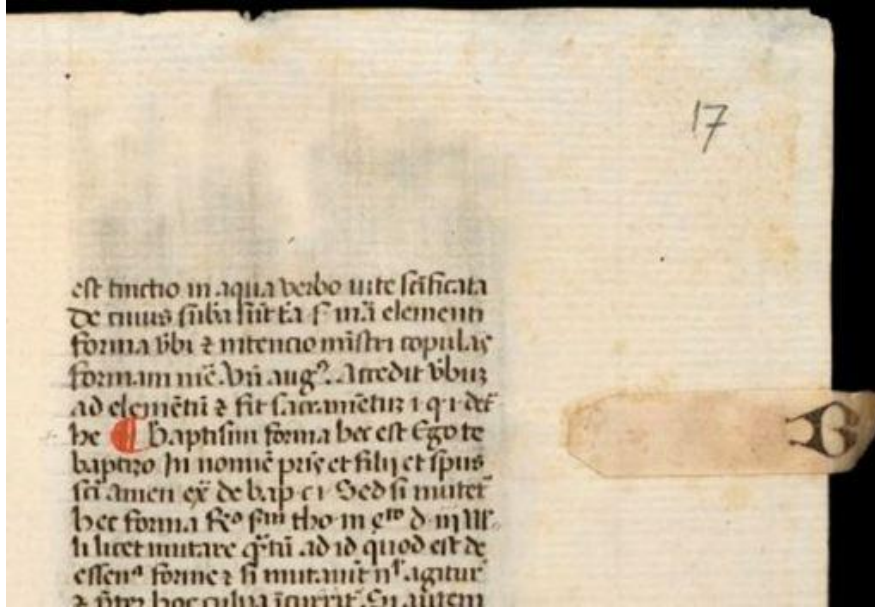 17
est tinctio in aqua verbo uite scĩficata
De cuius sũba sũt t'a s' mã elementi
forma v̾bi ⁊ intencio mĩstri copulãs
formam Vñ augꝰ. Accedit v̾buꝫ
ad elemẽtũ ⁊ fit sacramẽtuꝫ 1 q̇ 1 det̾
he ¶ Baptismi forma hec est Ego te
B
baptizo In nomĩe pr̃is et filij et sp̃us
sc̃i amen ex̃ de bap c 1 Sed si mutet̾
hec forma Rº fm̃ tho in q̃rto d iij
li licet mutare q̃tũ ad id quod est de
essenᵃ forme ⁊ si mutauit agitur
⁊ p̃ter hoc culpã ĩcurrit Si autem